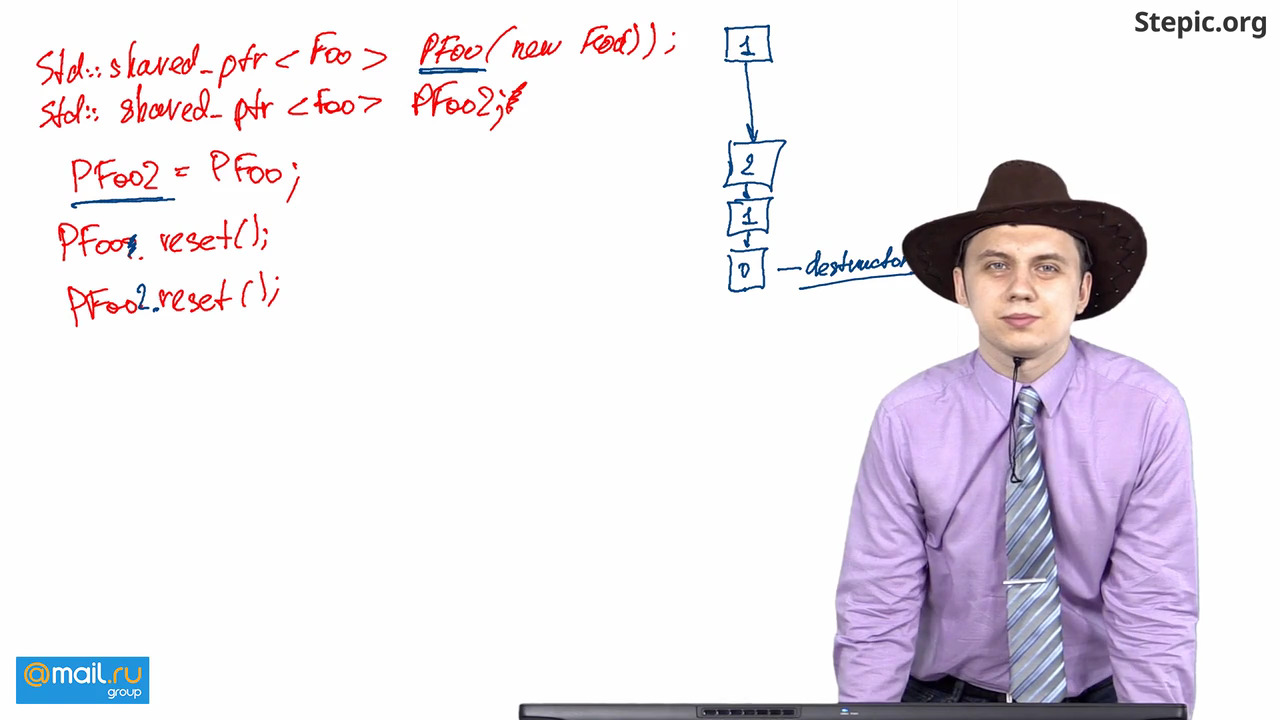 Stepic.org
std:: shared_ptr <Foo> PFoo(new Foo());
1
std:: shared_ptr <Foo> PFoo2;
PFoo2 = PFoo;
2
PFoo. reset();
1
PFoo2.reset();
0 — destructor
@mail.ru
group